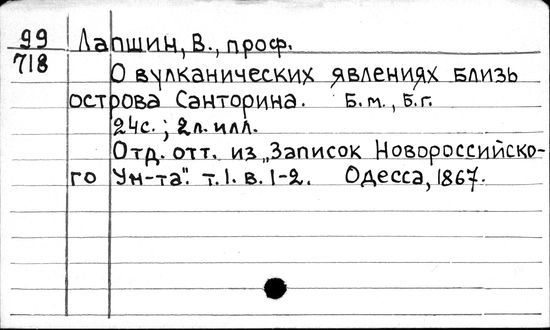 99 Лапшин, В., проф.
718
О вулканических явлениях близь
острова Санторина. Б.м., Б.г.
24с.; 2л. илл.
Отд. отт. из „Записок Новороссийско-
го Ун-та". т.1. в.1-2. Одесса, 1867.